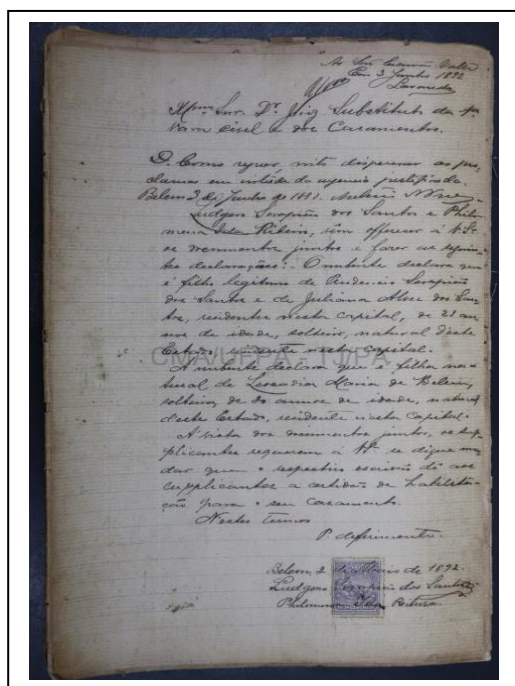 Ao Snr Escrivão Valle
Em 3 Junho 1892
Illmo Snr. Dr. Juiz Substituto da
Vara Civel e dos Casamentos.
D. Como requer, visto dispensar os pro-
clamas em virtude da urgencia justificada.
Belem 3 de Junho de 1892.
Ludgero Serapião dos Santos e Philo-
mena vêm offerecer á V.Sª
os documentos juntos e fazer as seguin-
tes declarações: O nubente declara que
é filho legitimo de Prudencio Serapião
dos Santos e de Juliana Alves dos San-
tos, residentes nesta capital, de 23 an-
nos de idade, solteiro, natural deste
Estado, residente nesta capital.
CMA/UFPA - TJ/PA
A nubente declara que é filha na-
tural de Leocadia Maria de Belem,
solteira, de annos de idade, natural
deste Estado, residente nesta capital.
A vista dos documentos juntos, os sup-
plicantes requerem á V.Sª se digne man-
dar que o respectivo escrivão dê aos
supplicantes a certidão de habilita-
ção para o seu casamento.
Nestes termos
P. deferimento.
Belem, 2 de de 1892.
Ludgero Serapião dos Santos
Philomena